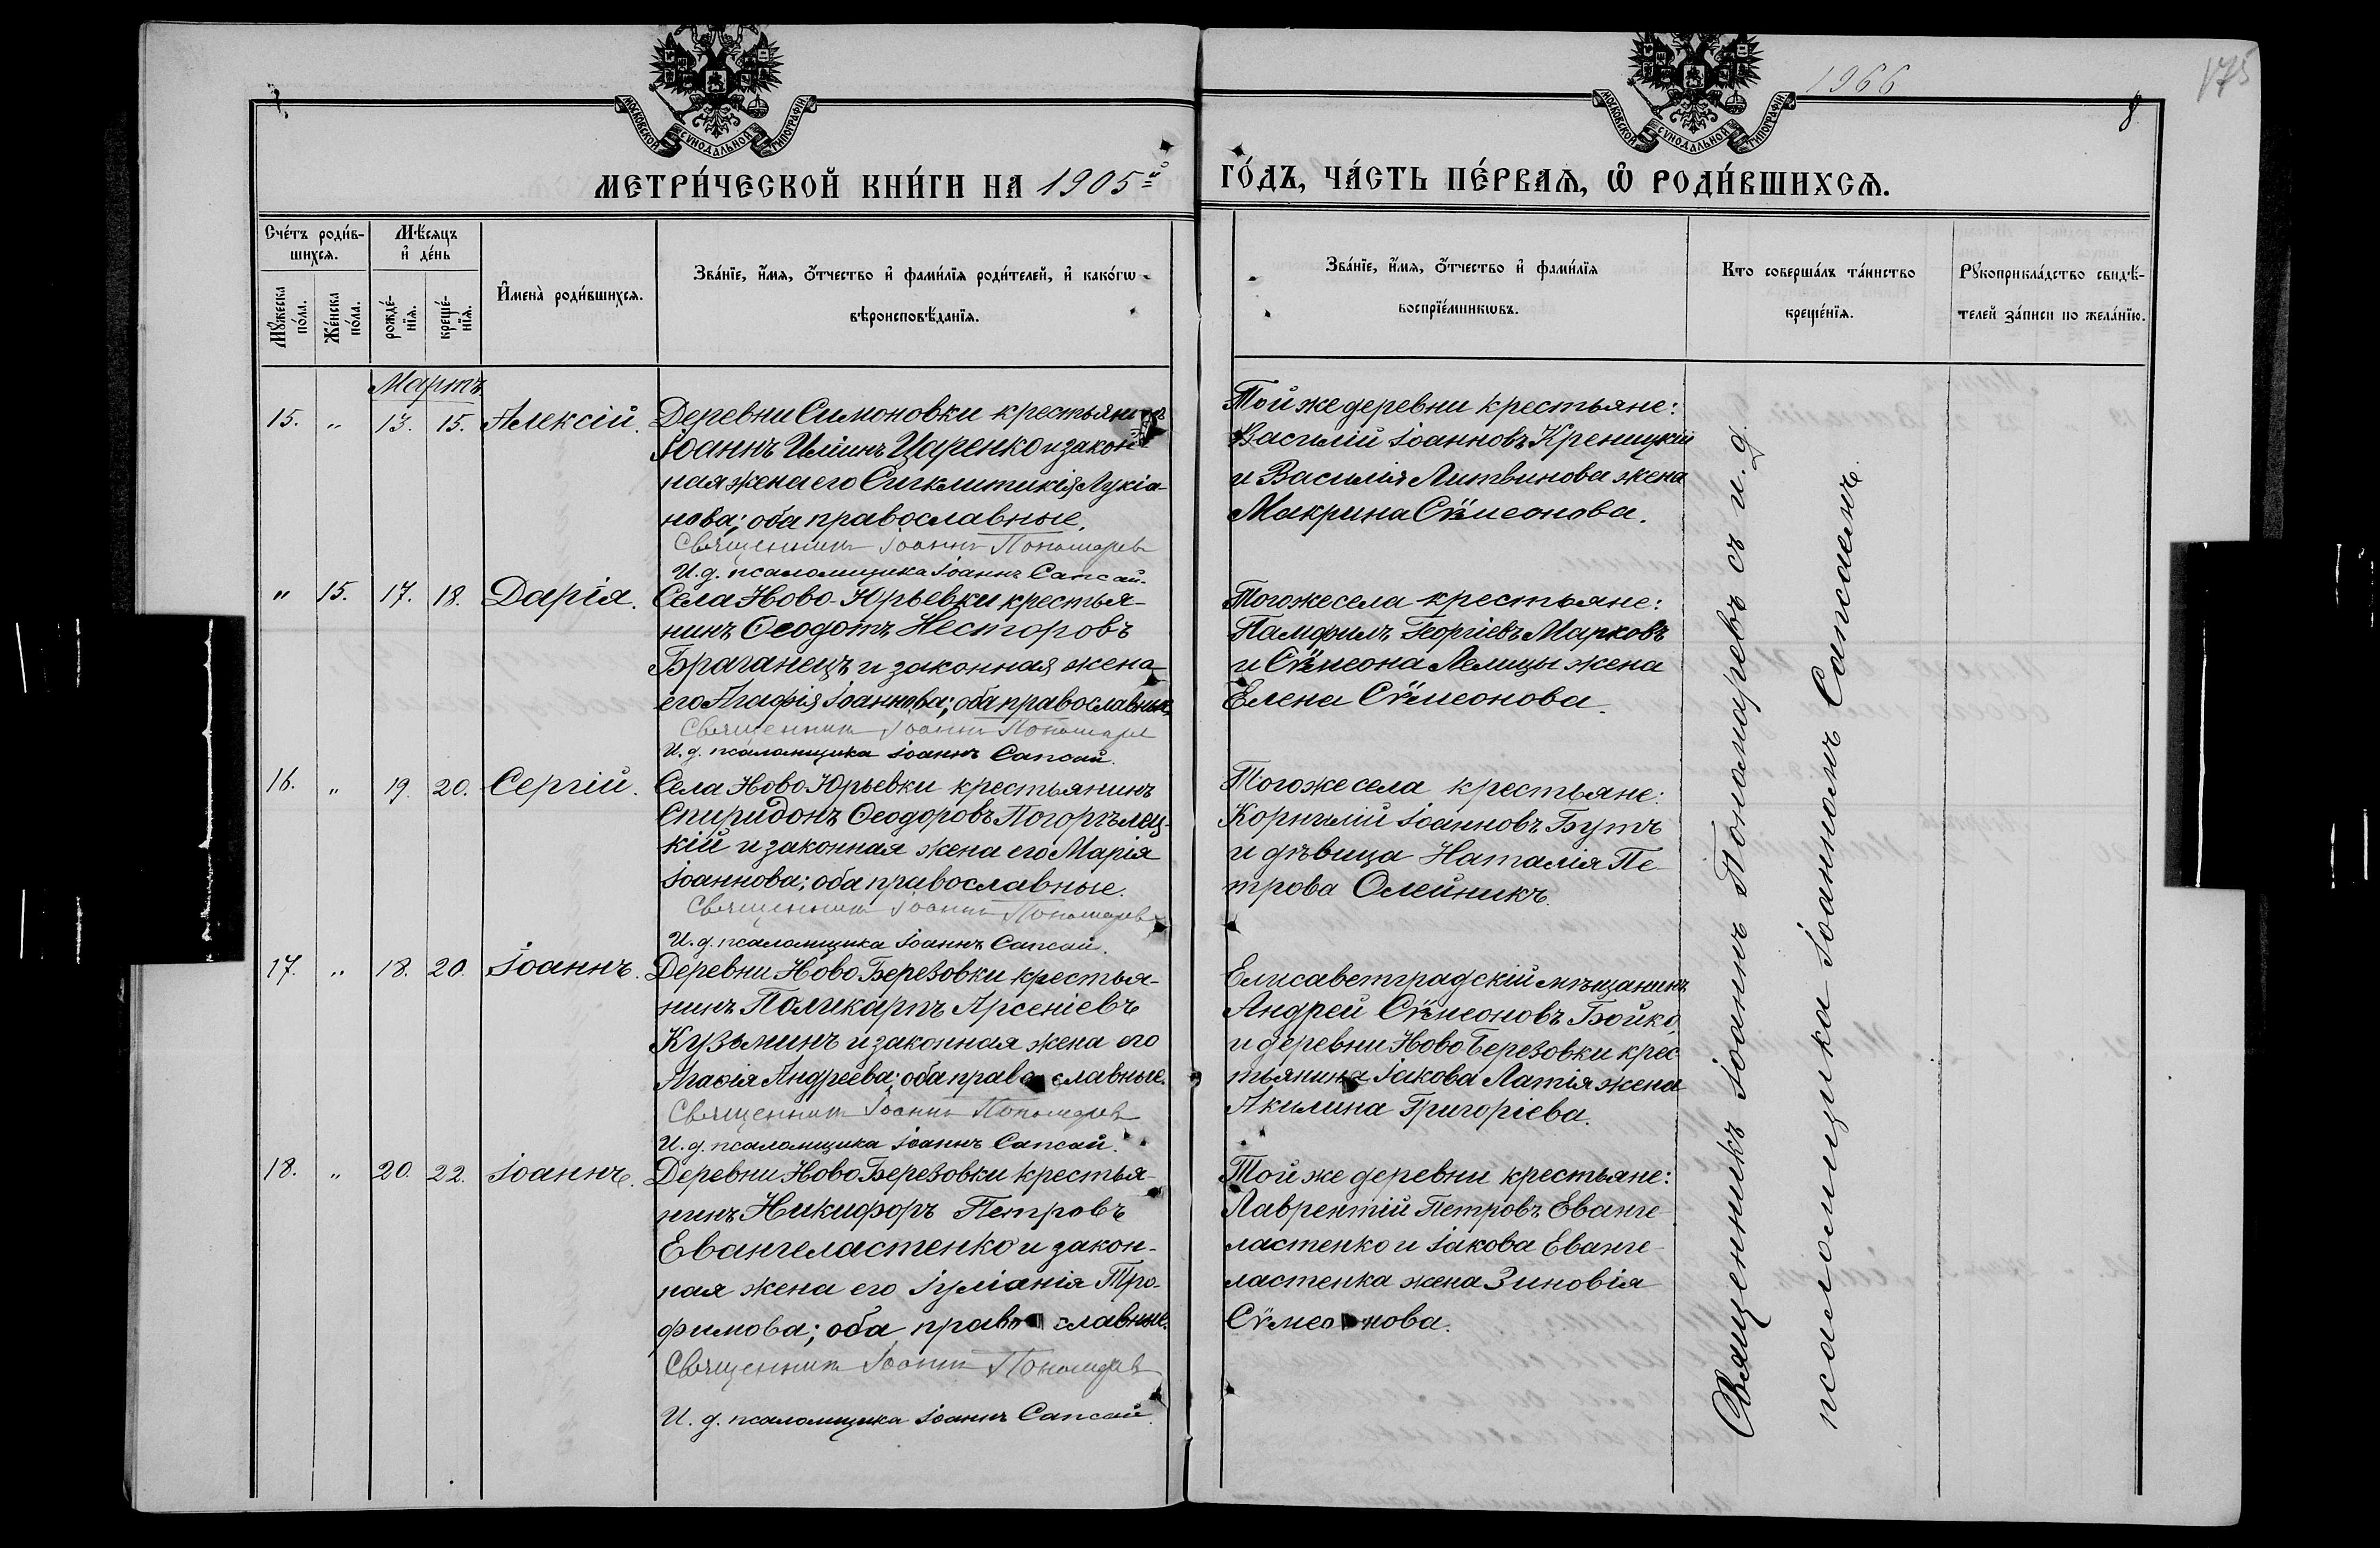 1966
175
7.
8
МОСКОВСКОЙ СѴНОДАЛЬНОЙ ТИПОГРАФІИ
МОСКОВСКОЙ СѴНОДАЛЬНОЙ ТИПОГРАФІИ
МЕТРИ́ЧЕСКОЙ КНИ́ГИ НА 1905й ГО́ДЪ, ЧА́СТЬ ПЕ́РВАѦ, Ѡ҆ РОДИ́ВШИХСѦ.
Сче́тъ роди́в-
шихсѧ.
Мꙋ́жеска
по́ла.
Же́нска
по́ла.
Мѣ́сѧцъ
и҆ де́нь
рожде́-
нїѧ.
креще́-
нїѧ.
И҆мена̀ роди́вшихсѧ.
Зва́нїе, и҆́мѧ, ѻ҆́тчество и҆ фами́лїѧ роди́телей, и҆ како́гѡ
вѣроисповѣ́данїѧ.
Зва́нїе, и҆́мѧ, ѻ҆́тчество и҆ фами́лїѧ
воспрїе́мникѡвъ.
Кто соверша́лъ та́инство
креще́нїѧ.
Рꙋкоприкла́дство свидѣ́-
телей за́писи по жела́нїю.
Мартъ
15. „ 13. 15. Алексій.
Деревни Симоновки крестьянинъ
Іоаннъ Иліинъ Царенко и закон
ная жена его Сигклитикія Лукіа-
нова; оба православные.
Священникъ Іоаннъ Пономаревъ
И. д. псаломщика Іоаннъ Сапсай.
Той же деревни крестьяне:
Василій Іоанновъ Креницкій
и Василія Литвинова жена
Макрина Сѵмеонова.
„ 15. 17. 18. Дарія.
Села Ново-Юрьевки крестья-
нинъ Ѳеодотъ Несторовъ
Браганецъ и законная жена
его Агафія Іоаннова; оба православные,
Священникъ Іоаннъ Пономарев
И. д. псаломщика Іоаннъ Сапсай.
Того же села крестьяне:
Памфилъ Георгіевъ Марковъ
и Сѵмеона Лелицы жена
Елена Сѵмеонова.
16. „ 19. 20. Сергій.
Села Ново Юрьевки крестьянинъ
Спиридонъ Ѳеодоровъ Погорѣлец-
кій и законная жена его Марія
Іоаннова; оба православные.
Священникъ Іоаннъ Пономаревъ
И. д. псаломщика Іоаннъ Сапсай.
Того же села крестьяне:
Корнилій Іоанновъ Бутъ
и дѣвица Наталія Пе-
трова Олейникъ.
17. „ 18. 20. Іоаннъ.
Деревни Ново Березовки крестья-
нинъ Поликарпъ Арсеніевъ
Кузьминъ и законная жена его
Агафія Андреева; оба православные.
Священникъ Іоаннъ Пономаревъ
И. д. псаломщика Іоаннъ Сапсай.
Елисаветградскій мѣщанинъ
Андрей Сѵмеоновъ Бойко,
и деревни Ново Березовки крес
тьянина Іакова Латія жена
Акилина Григоріева.
18. „ 20. 22. Іоаннъ.
Деревни Ново Березовки крестья-
нинъ Никифоръ Петровъ
Евангеластенко и закон-
ная жена его Іуліанія Тро-
фимова; оба православные.
Священникъ Іоаннъ Пономаревъ
И. д. псаломщика Іоаннъ Сапсай.
Той же деревни крестьяне:
Лаврентій Петровъ Еванге-
ластенко и Іакова Еванге-
ластенка жена Зиновія
Сѵмеонова.
Священникъ Іоаннъ Пономаревъ съ и. д.
псаломщика Іоанномъ Сапсаемъ.